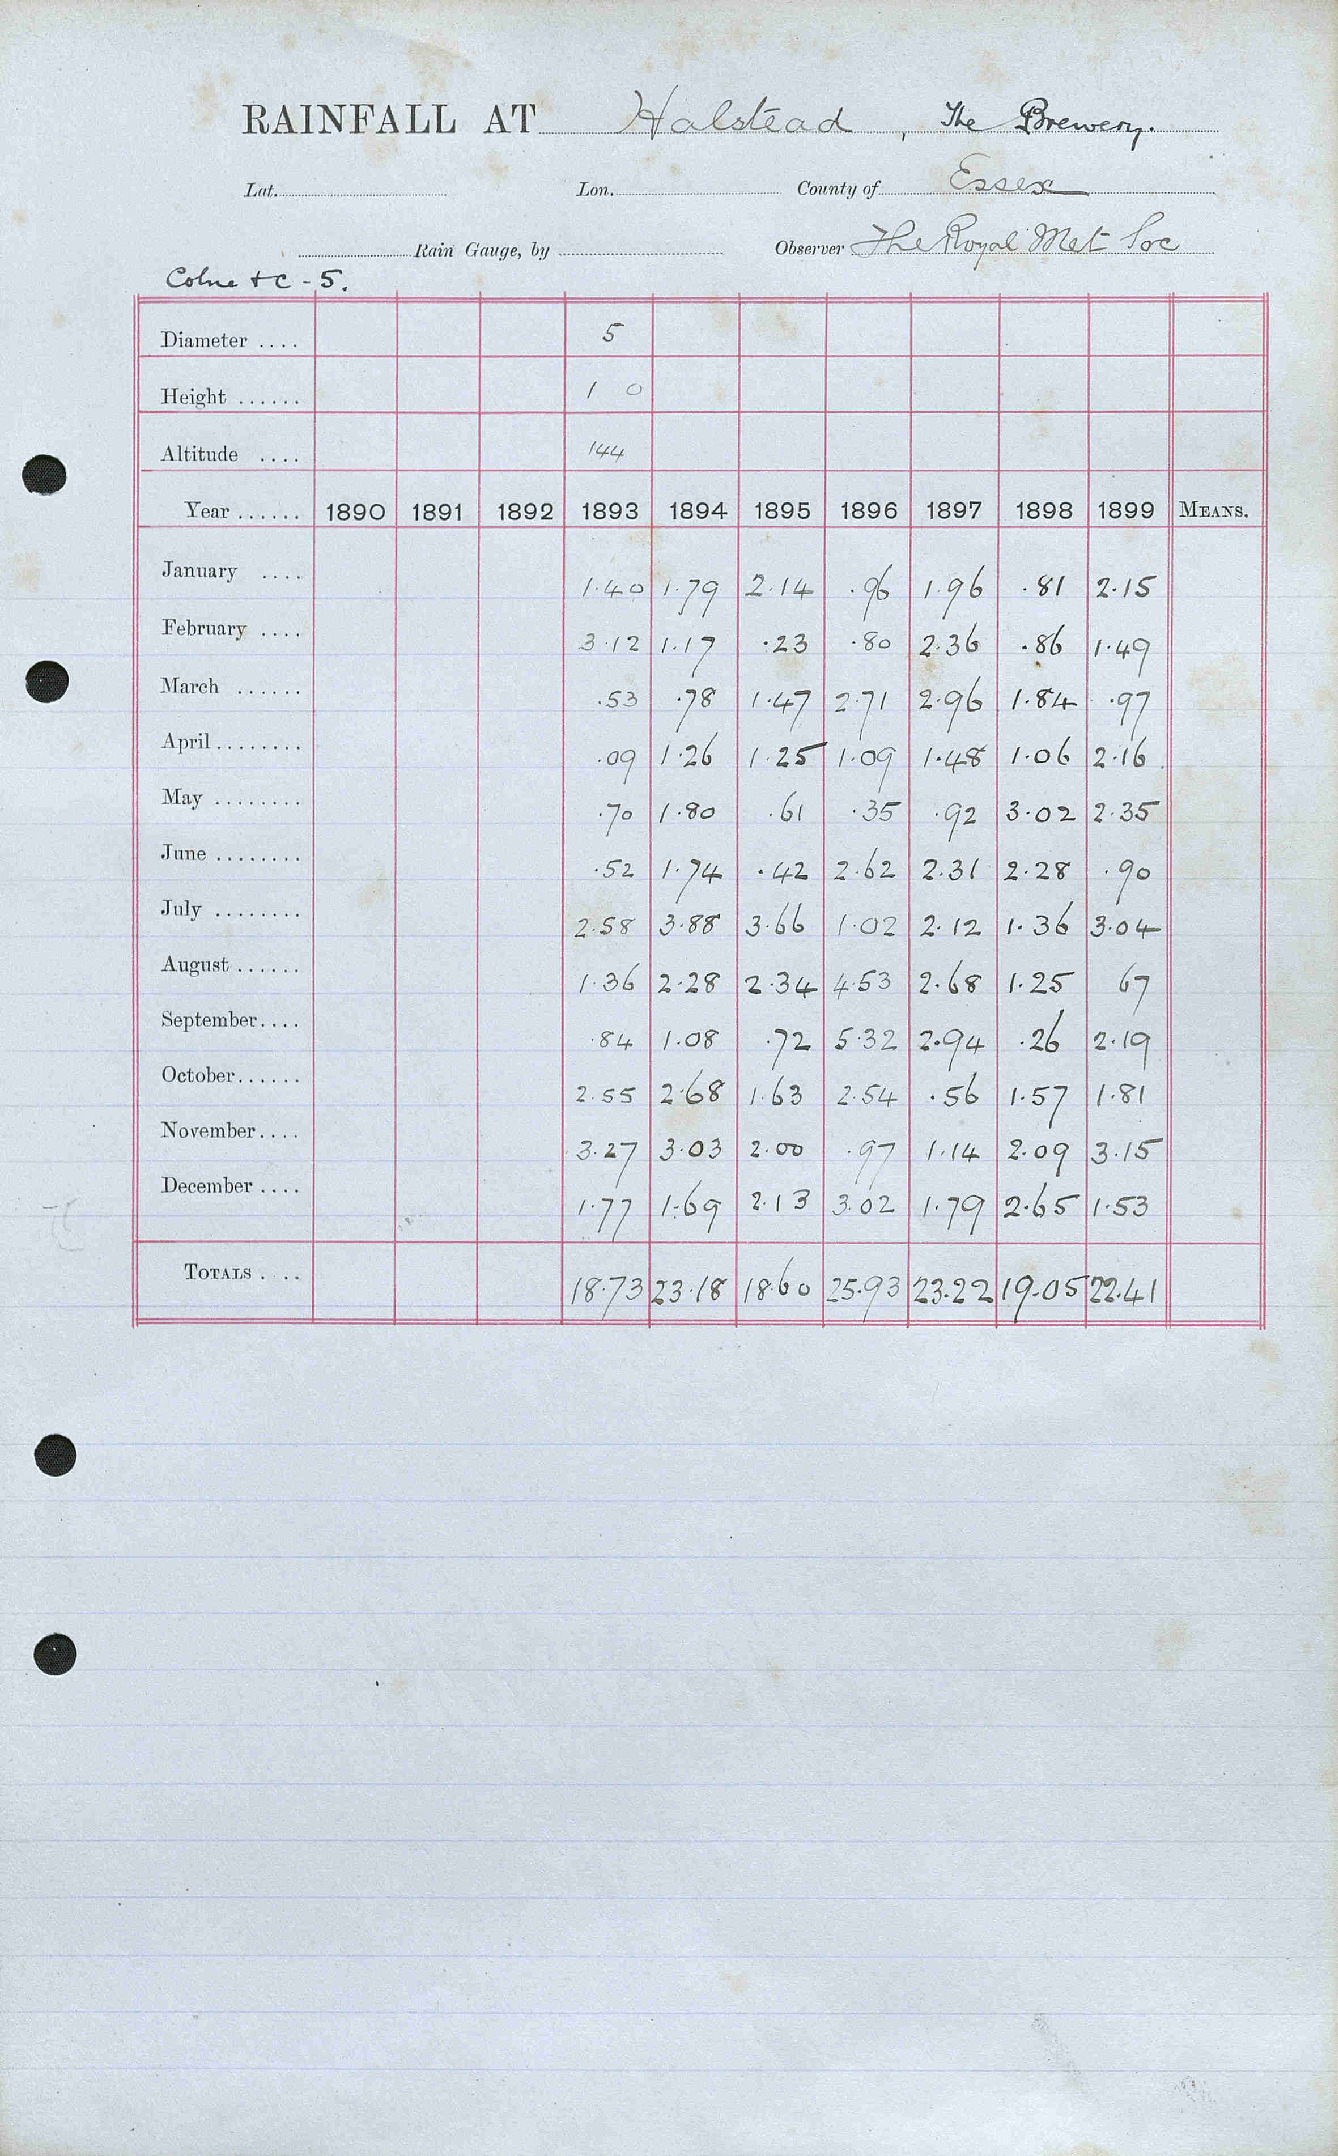 RAINFALL AT Halstead, The Brewery.
Lat. Lon. County of Essex
Rain Gauge, by Observer The Royal Met Soc
Colne & C - 5.
Diameter .... 5
Height ...... 1 0
Altitude .... 144
Year ...... 1890 1891 1892 1893 1894 1895 1896 1897 1898 1899 MEANS.
January .... 1.40 1.79 2.14 .96 1.96 .81 2.15
February .... 3.12 1.17 .23 .80 2.36 .86 1.49
March ...... .53 .78 1.47 2.71 2.96 1.84 .97
April ........ .09 1.26 1.25 1.09 1.48 1.06 2.16
May ........ .70 1.80 .61 .35 .92 3.02 2.35
June ........ .52 1.74 .42 2.62 2.31 2.28 .90
July ........ 2.58 3.88 3.66 1.02 2.12 1.36 3.04
August ...... 1.36 2.28 2.34 4.53 2.68 1.25 67
September.... .84 1.08 .72 5.32 2.94 .26 2.19
October...... 2.55 2.68 1.63 2.54 .56 1.57 1.81
November.... 3.27 3.03 2.00 .97 1.14 2.09 3.15
December .... 1.77 1.69 2.13 3.02 1.79 2.65 1.53
TOTALS .... 18.73 23.18 18.60 25.93 23.22 19.05 22.41